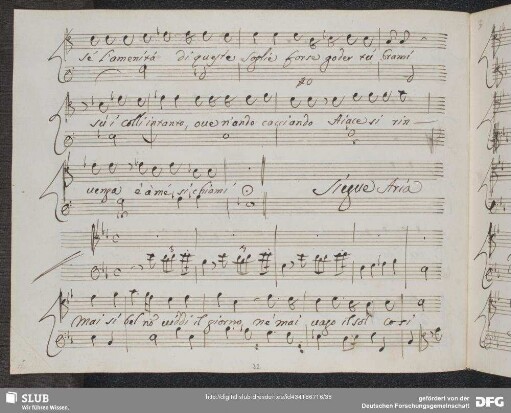 se l'amenità di queste soglie forse goder tu brami
su i colli intanto, ove n'ando cacciando Aiace si rin-
venga è à mè, si chiami Siegue Aria
Mai si bel nō vidi il giorno, nè mai vago il sol co si
SLUB
Wir führen Wissen.
gefördert von der
Deutschen Forschungsgemeinschaft
DFG